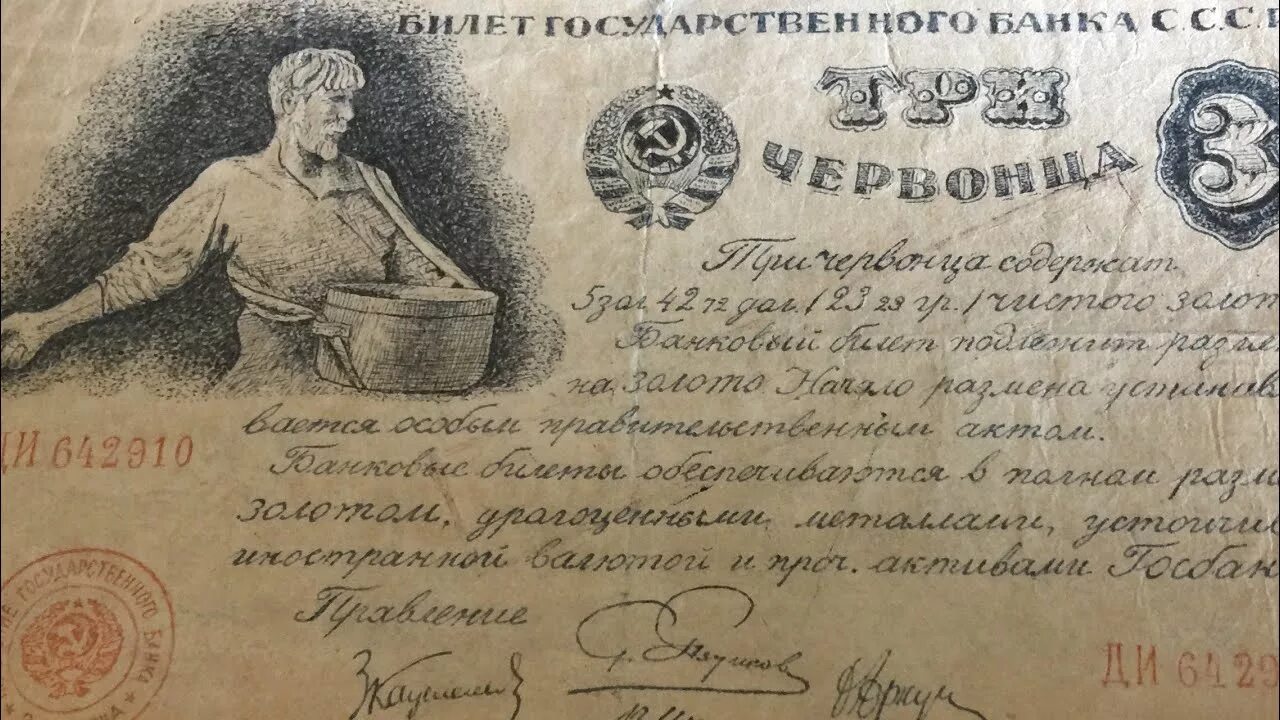 БИЛЕТ ГОСУДАРСТВЕННОГО БАНКА С.С.С.
ТРИ
ЧЕРВОНЦА
3
Три червонца содержат
5 зол. 42 72 дол. / 23 23 гр. / чистого золот
Банковый билет подлежит разме
на золото Начало размена устанав
вается особым правительственным актом.
ДИ 642910
Банковые билеты обеспечиваются в полном разм
золотом, драгоценными металлами, устойчи
иностранной валютой и проч. активами Госбан
Правление
ГОСУДАРСТВЕННОГО БАНКА
ДИ 6429